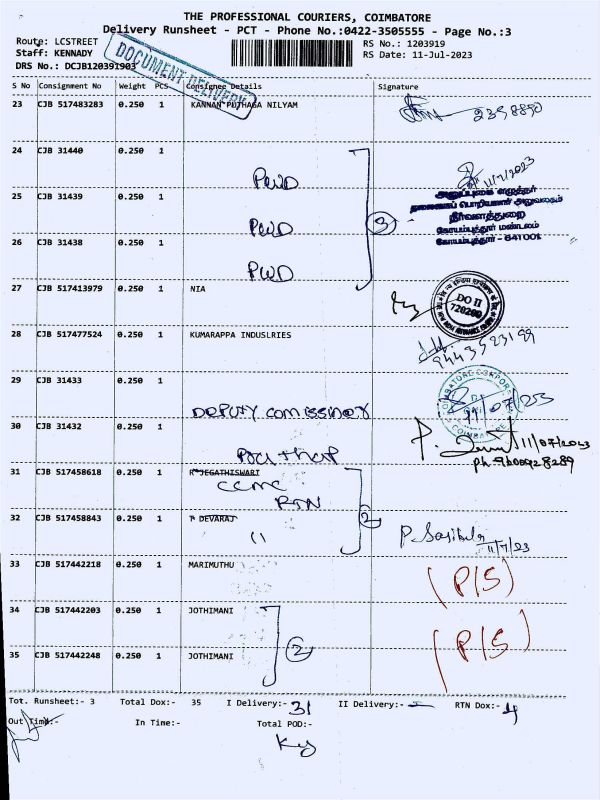 THE PROFESSIONAL COURIERS, COIMBATORE
Delivery Runsheet - PCT - Phone No.:0422-3505555 - Page No.:3
Route: LCSTREET
RS No.: 1203919
Staff: KENNADY
RS Date: 11-Jul-2023
DRS No.: DCJB120391903
DOCUMENT DELIVERY
S No Consignment No Weight PCS Consignee Details Signature
23 CJB 517483283 0.250 1 KANNAN PUTHAGA NILYAM
2398890
24 CJB 31440 0.250 1
PWD
11/7/2023
25 CJB 31439 0.250 1
PWD
3
26 CJB 31438 0.250 1
PWD
நீர்வளத்துறை
கோயம்புத்தூர் மண்டலம்
கோயம்புத்தூர் - 641 001
27 CJB 517413979 0.250 1 NIA
DO II
720200
28 CJB 517477524 0.250 1 KUMARAPPA INDUSLRIES
29 CJB 31433 0.250 1
DEPUTY COMISSINER
30 CJB 31432 0.250 1
COIMBATORE
11/07/2023
ph:9600928289
31 CJB 517458618 0.250 1 R JEGATHISWARI
CCMC
RTN
2
32 CJB 517458843 0.250 1 P DEVARAJ
11
11/7/23
33 CJB 517442218 0.250 1 MARIMUTHU
(P/S)
34 CJB 517442203 0.250 1 JOTHIMANI
2
(P/S)
35 CJB 517442248 0.250 1 JOTHIMANI
Tot. Runsheet:- 3 Total Dox:- 35 I Delivery:- 31 II Delivery:- RTN Dox:- 4
Out Time:- In Time:- Total POD:-